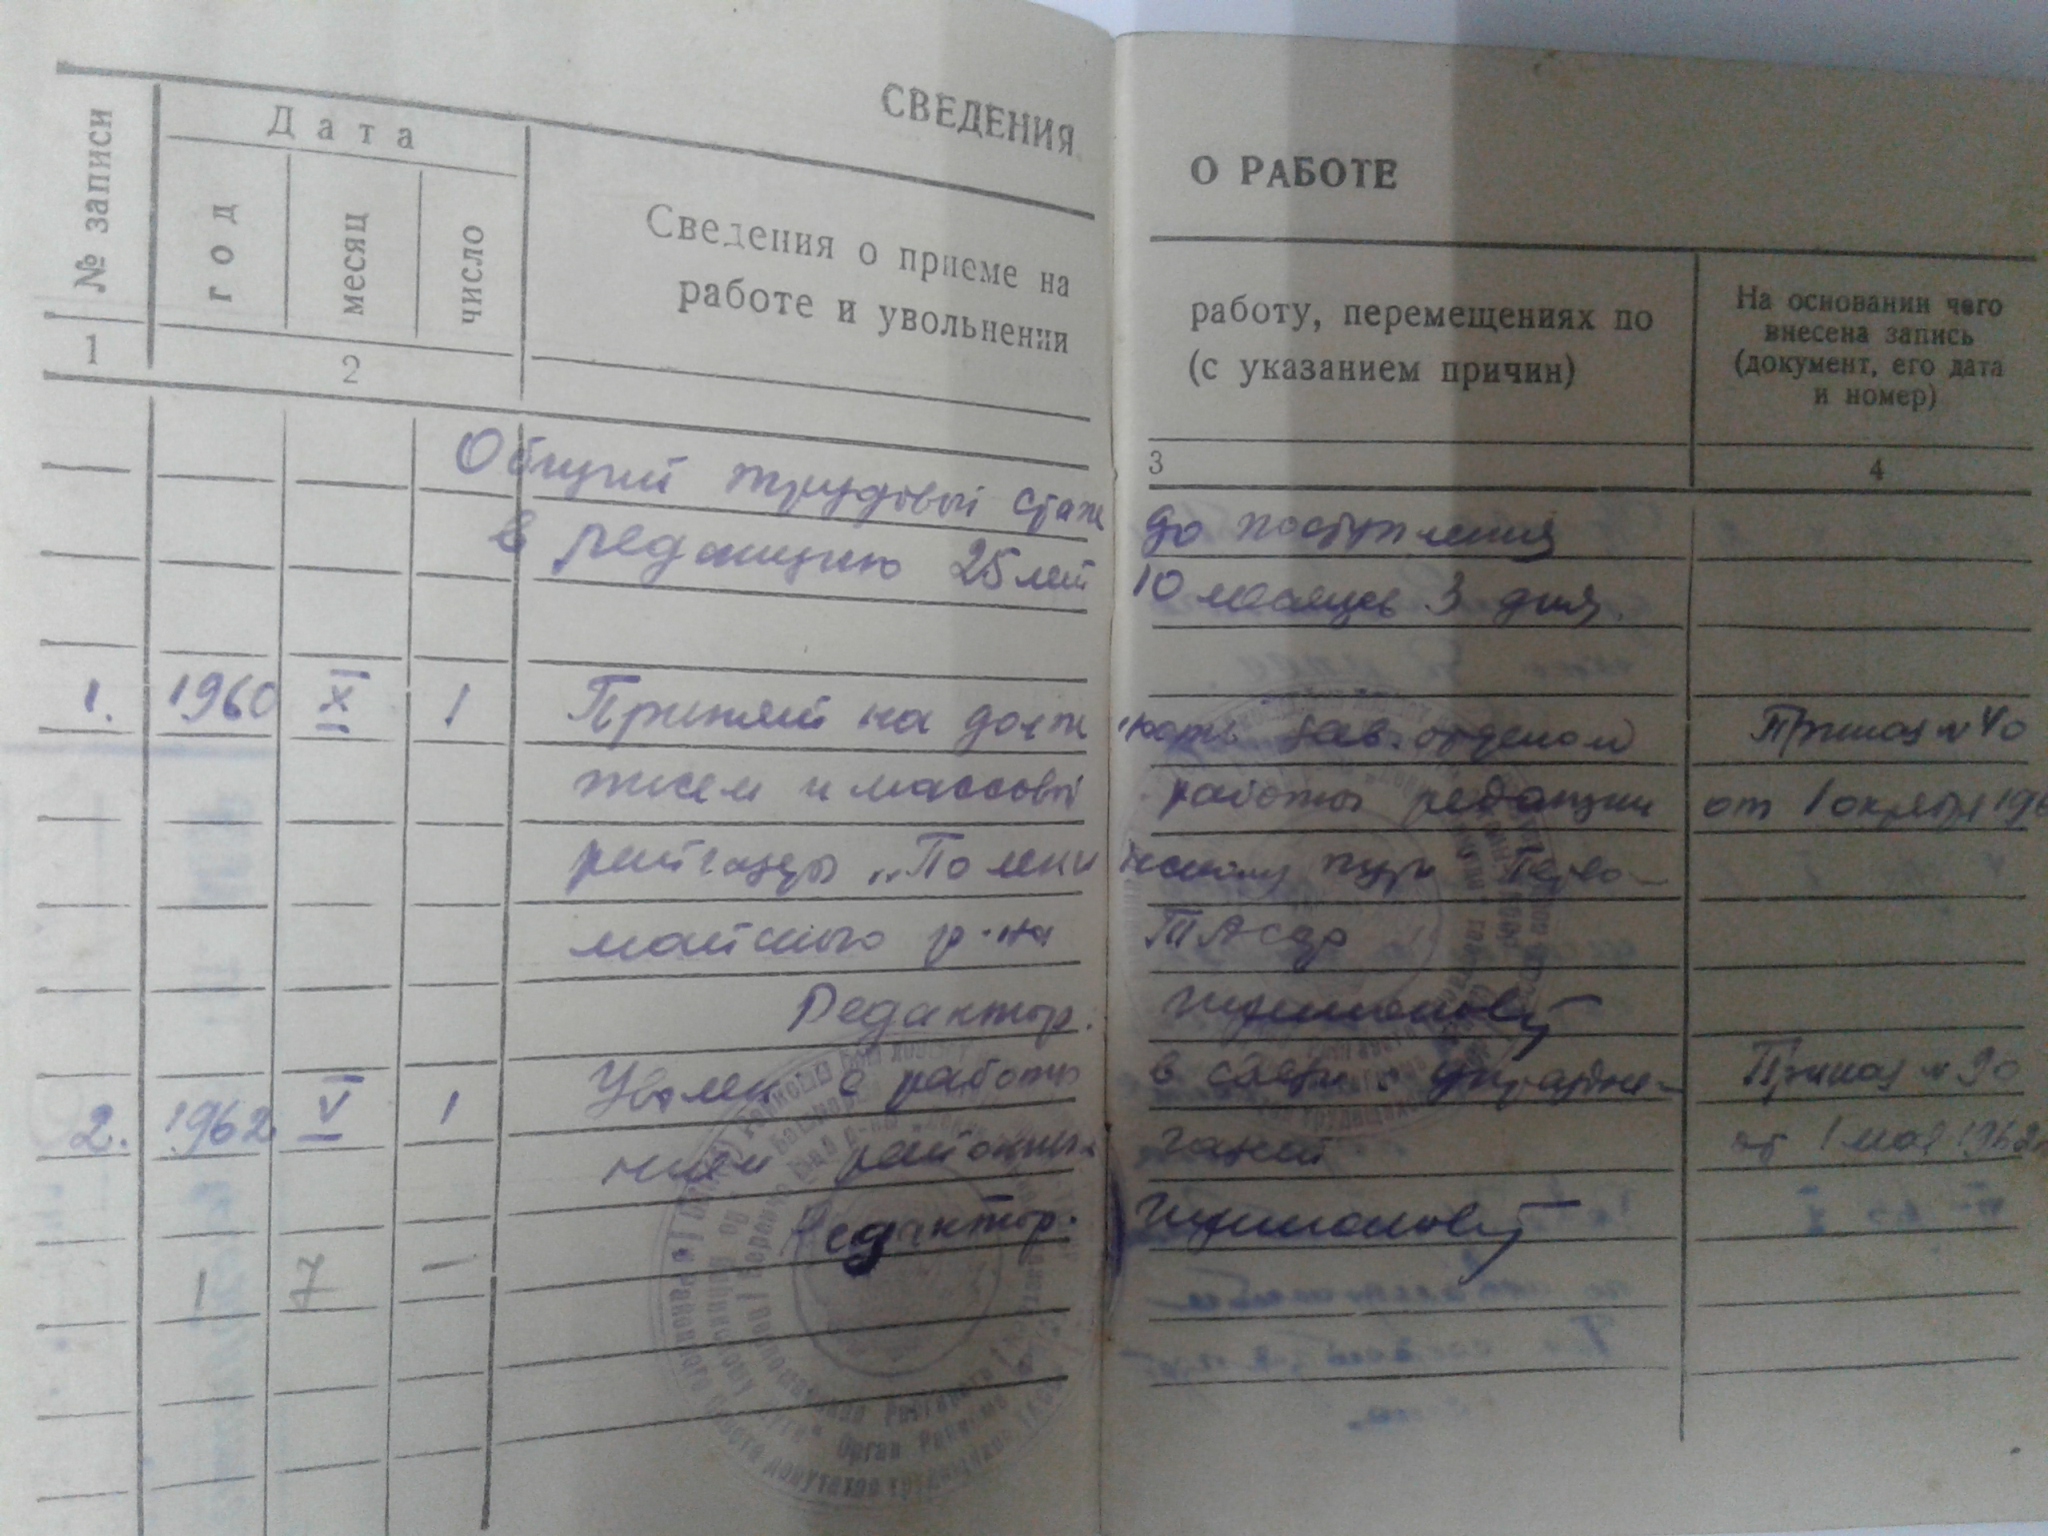 СВЕДЕНИЯ О РАБОТЕ
№ записи
Дата
год
месяц
число
Сведения о приеме на работу, перемещениях по
работе и увольнении (с указанием причин)
На основании чего
внесена запись
(документ, его дата
и номер)
1 2 3 4
Общий трудовой стаж до поступления
в редакцию 25 лет 10 месяцев 3 дня.
1. 1960 X 1 Принят на должность зав. отделом Приказ № 40
писем и массовой работы редакции от 1 октября 196
райгазеты „По ленинскому пути Перво-
майского р-на ТАССР
Редактор.
2. 1962 V 1 Уволен с работы в связи с упраздне- Приказ № 90
нием районных газет от 1 мая 1962
Редактор.
1 7 —